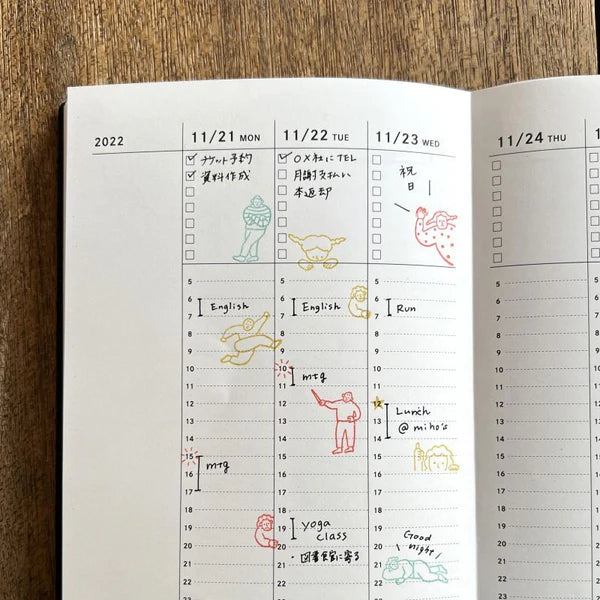 2022
11/21 MON
チケット予約
資料作成
5
6
7
English
8
9
10
11
12
13
14
15
16
mtg
17
18
19
20
21
22
11/22 TUE
○×社にTEL
月謝支払い
本返却
5
6
7
English
8
9
10
11
mtg
12
13
14
15
16
17
18
19
yoga
class
20
・図書館に寄る
21
22
11/23 WED
祝
日
5
6
7
Run
8
9
10
11
12
13
Lunch
@miho's
14
15
16
17
18
19
20
Good
night
21
22
11/24 THU
5
6
7
8
9
10
11
12
13
14
15
16
17
18
19
20
21
22